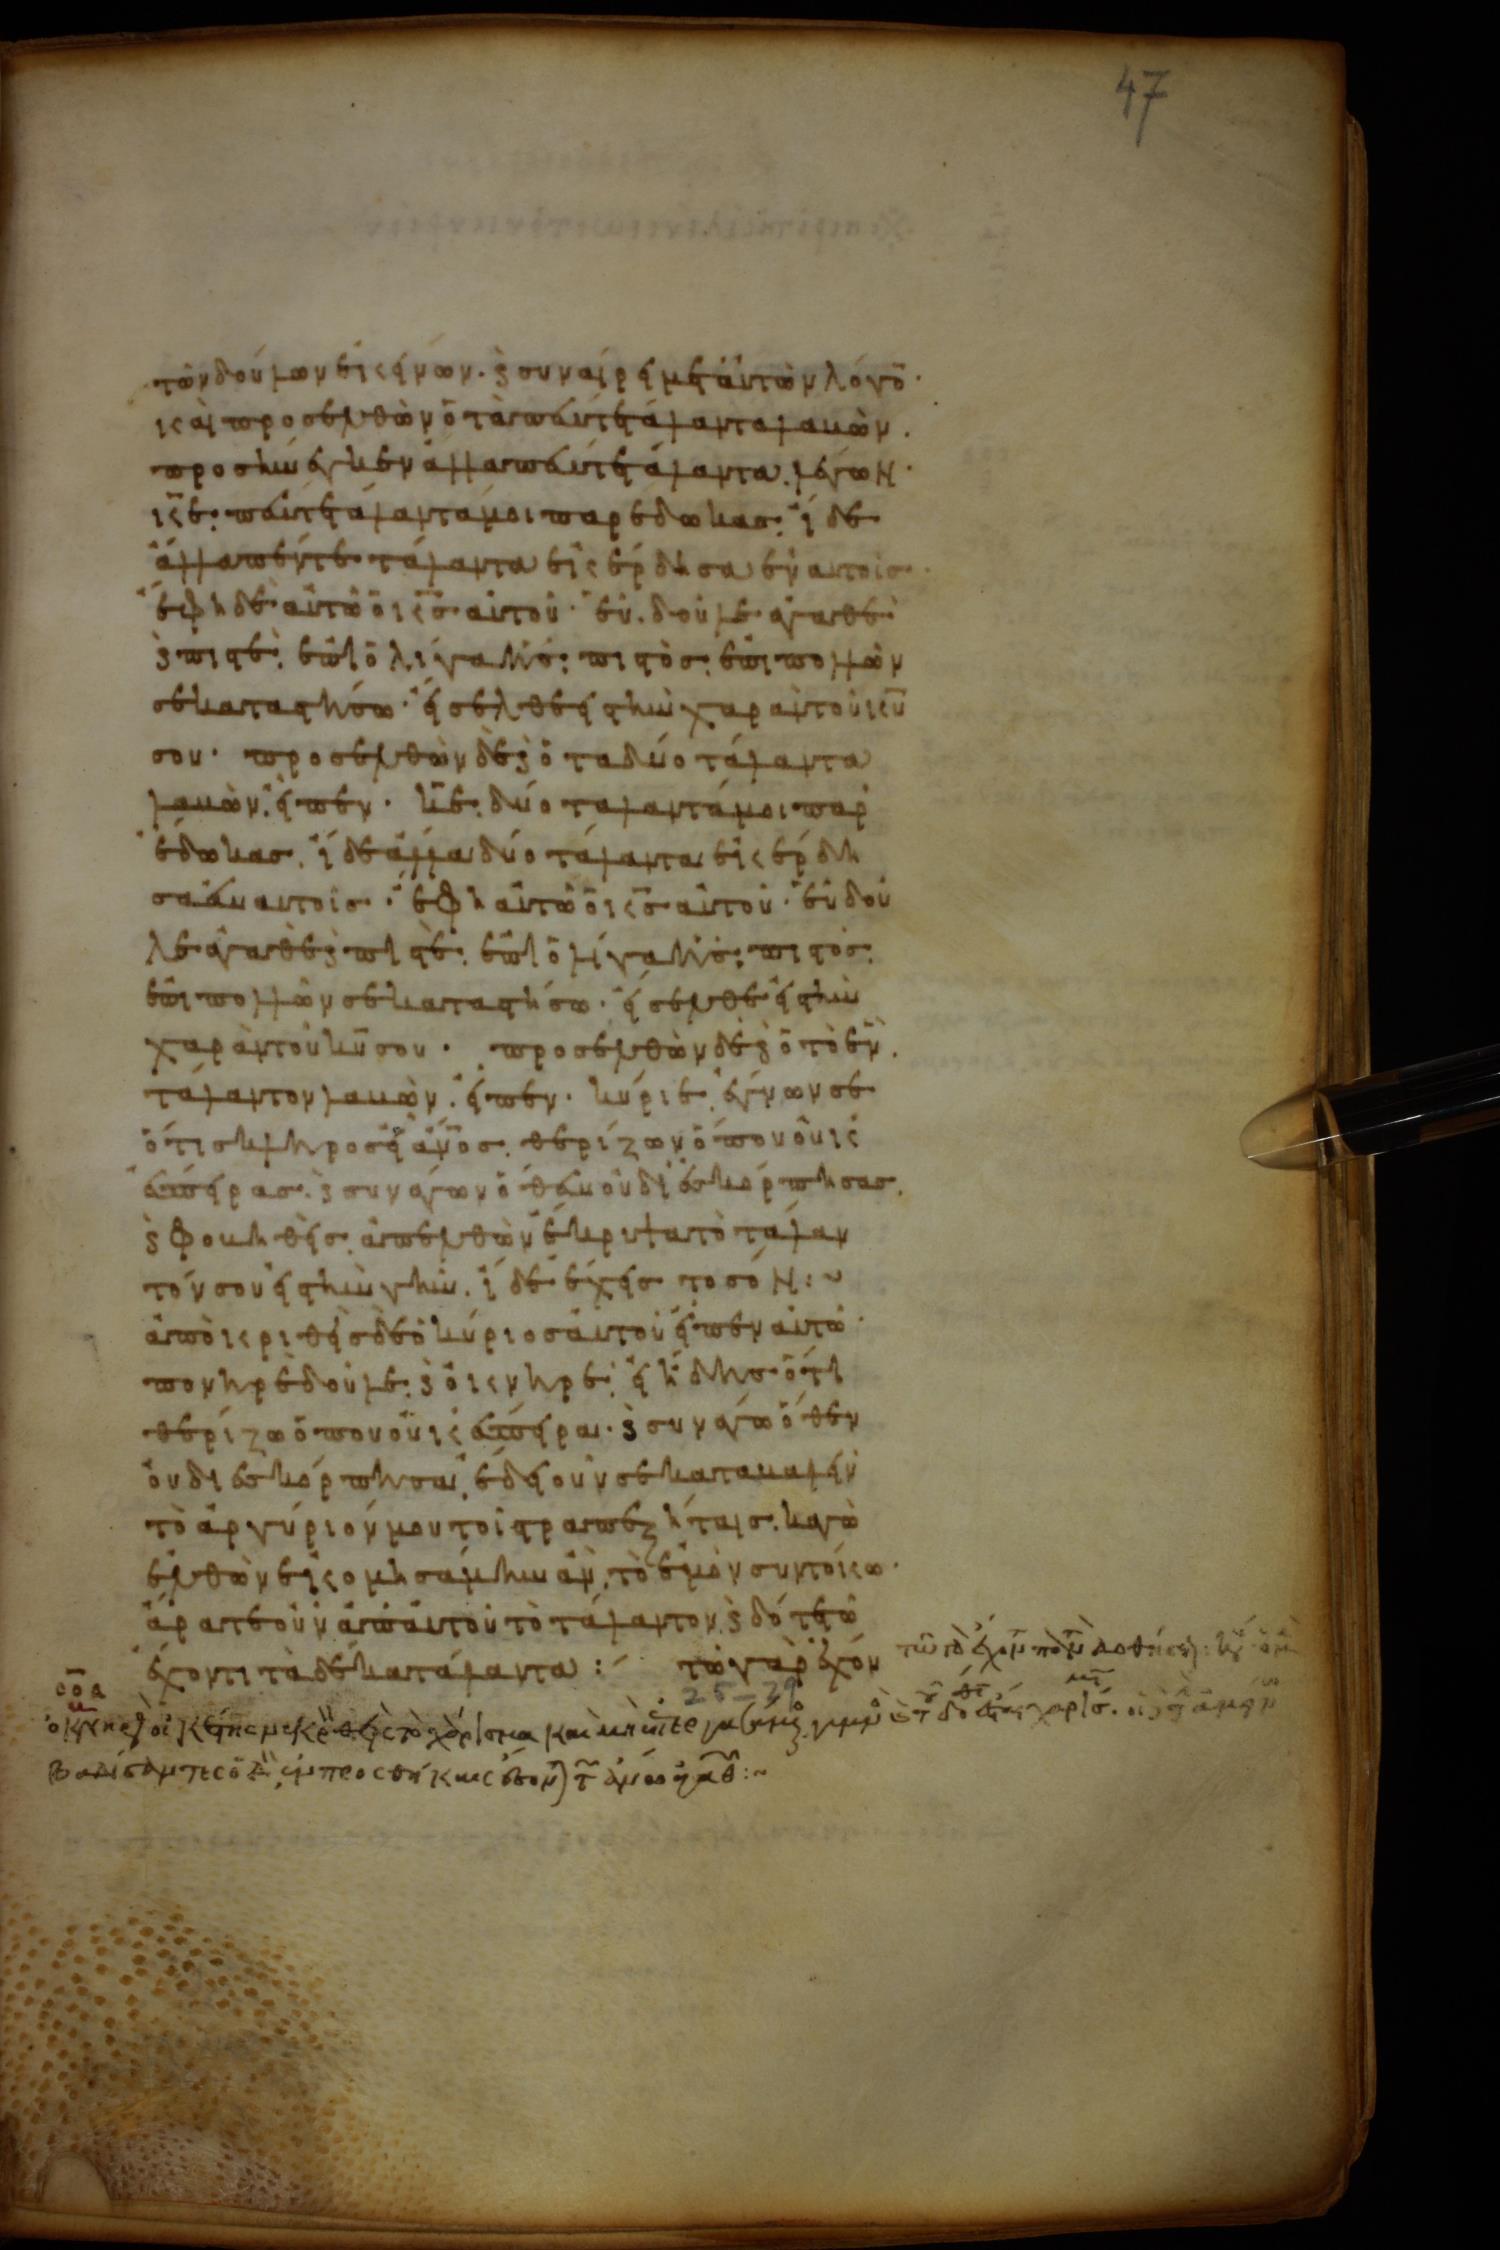 47
τῶν δούλων ἐκείνων. ϗ συναίρει μετ' αὐτῶν λόγον·
καὶ προσελθὼν ὁ τὰ πέντε τάλαντα λαβὼν.
προσήνεγκεν ἄλλα πέντε τάλαντα. λέγων·
κ̅ε̅. πέντε τάλαντά μοι παρέδωκας. ἴδε
ἄλλα πέντε τάλαντα ἐκέρδησα ἐν αὐτοῖς·
ἔφη δὲ αὐτῶ ὁ κ̅ς̅ αὐτοῦ· εὖ. δοῦλε ἀγαθὲ
ϗ πιστέ. ἐπὶ ὀλίγα ἦς πιστὸς. ἐπὶ πολλῶν
σε καταστήσω· εἴσελθε εἰς τὴν χαρὰν τοῦ κ̅υ̅
σου· προσελθὼν δὲ ϗ ὁ τὰ δύο τάλαντα
λαβὼν. εἶπεν· κ̅ε̅. δύο τάλαντά μοι παρ
έδωκας. ἴδε ἄλλα δύο τάλαντα ἐκέρδη
σα ἐν αὐτοῖς· ἔφη αὐτῶ ὁ κ̅ς̅ αὐτοῦ· εὖ δοῦ
λε ἀγαθὲ ϗ πιστὲ. ἐπὶ ὀλίγα ἦς πιστός.
ἐπὶ πολλῶν σε καταστήσω· εἴσελθε εἰς τὴν
χαρὰν τοῦ κ̅υ̅ σου· προσελθὼν δὲ ϗ ὁ τὸ ἓν
τάλαντον λαβὼν. εἶπεν· κύριε, ἔγνων σε
ὅτι σκληρὸς εἶ ἄν̅ο̅ς. θερίζων ὅπου οὐκ
ἔσπειρας. ϗ συνάγων ὅθεν οὐ διεσκόρπησας.
ϗ φοβηθεὶς. ἀπελθὼν ἔκρυψα τὸ τάλαν
τόν σου εἰς τὴν γῆν. ἴδε ἔχεις τὸ σόν:~
ἀποκριθεὶς δὲ ὁ κύριος αὐτοῦ εἶπεν αὐτῶ·
πονηρὲ δοῦλε. ϗ ὀκνηρέ. εἰ ἤδης ὅτι
θερίζω ὅπου οὐκ ἔσπειρα. ϗ συνάγω ὅθεν
οὐ διεσκόρπησα. ἔδει οὖν σε καταβαλεῖν
τὸ ἀργύριόν μου τοῖς τραπεζήταις. κἀγὼ
ἐλθὼν ἐκομησάμην ἂν, τὸ ἐμὸν σὺν τόκω·
ἄρατε οὖν ἀπ' αὐτοῦ τὸ τάλαντον, ϗ δότε τῶ
ἔχοντι τὰ δέκα τάλαντα: τῶ γὰρ ἔχον
25-29